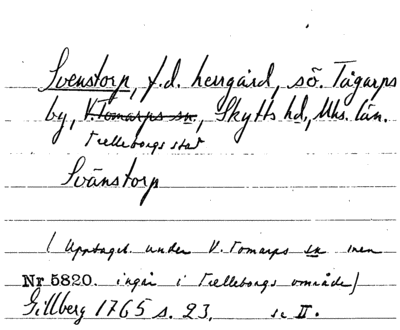 Svenstorp, f.d. herrgård, sö. Tågarps
by, V. Tomarps sn, Skytts hd, Mhs. län.
Trelleborgs stad
Svänstorp
(Upptaget under V. Tomarps sn men
Nr 5820. ingår i Trelleborgs område)
Gillberg 1765 s. 23, se II.